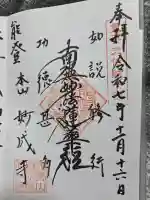 奉拝 令和七年十二月十六日
如説修行
南無妙法蓮華経
功徳甚
能登 本山 妙成寺